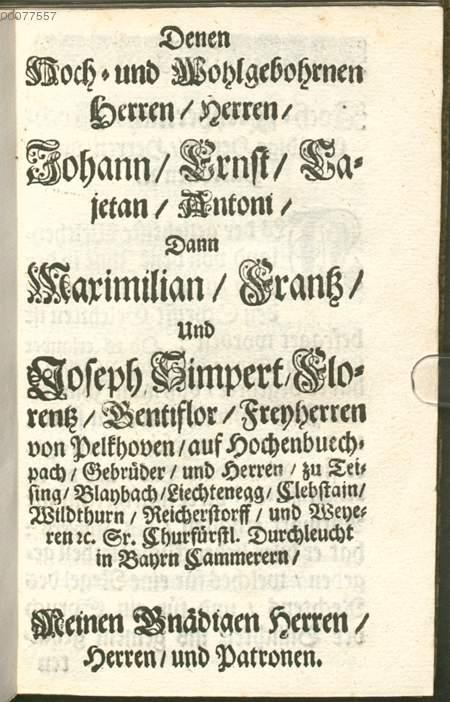 00077557
Denen
Hoch- und Wohlgebohrnen
Herren / Herren /
Johann / Ernst / Ca-
jetan / Antoni /
Dann
Maximilian / Frantz /
Und
Joseph Simpert / Flo-
rentz / Bentiflor / Freyherren
von Pelkhoven / auf Hochenbuech-
pach / Gebrüder / und Herren / zu Tei-
sing / Blaybach / Liechtenegg / Clebstain /
Wildthurn / Reicherstorff / und Weye-
ren ꝛc. Sr. Churfürstl. Durchleucht
in Bayrn Cammerern /
Meinen Gnädigen Herren /
Herren / und Patronen.